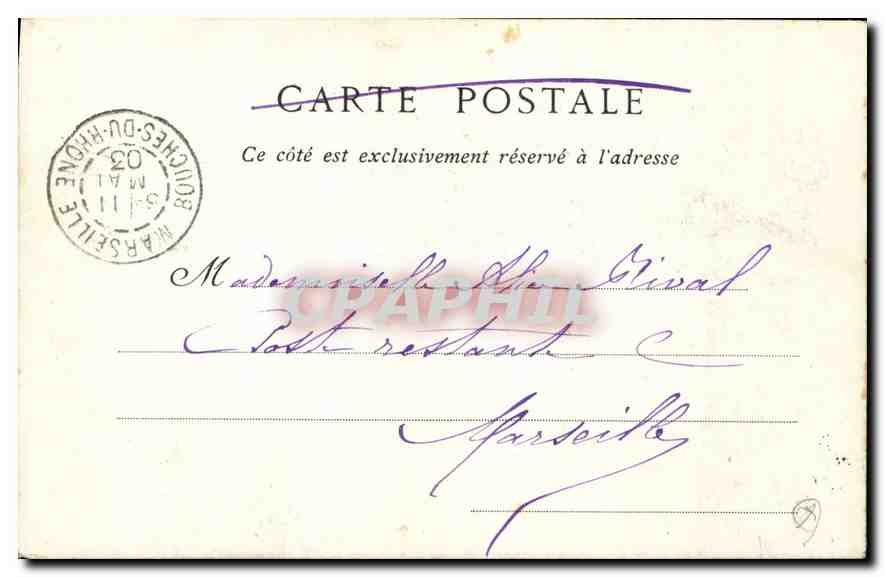 CARTE POSTALE
Ce côté est exclusivement réservé à l'adresse
MARSEILLE BOUCHES-DU-RHONE
11
MAI
03
Mademoiselle Rival
Post restante
Marseille
CPAPHIL